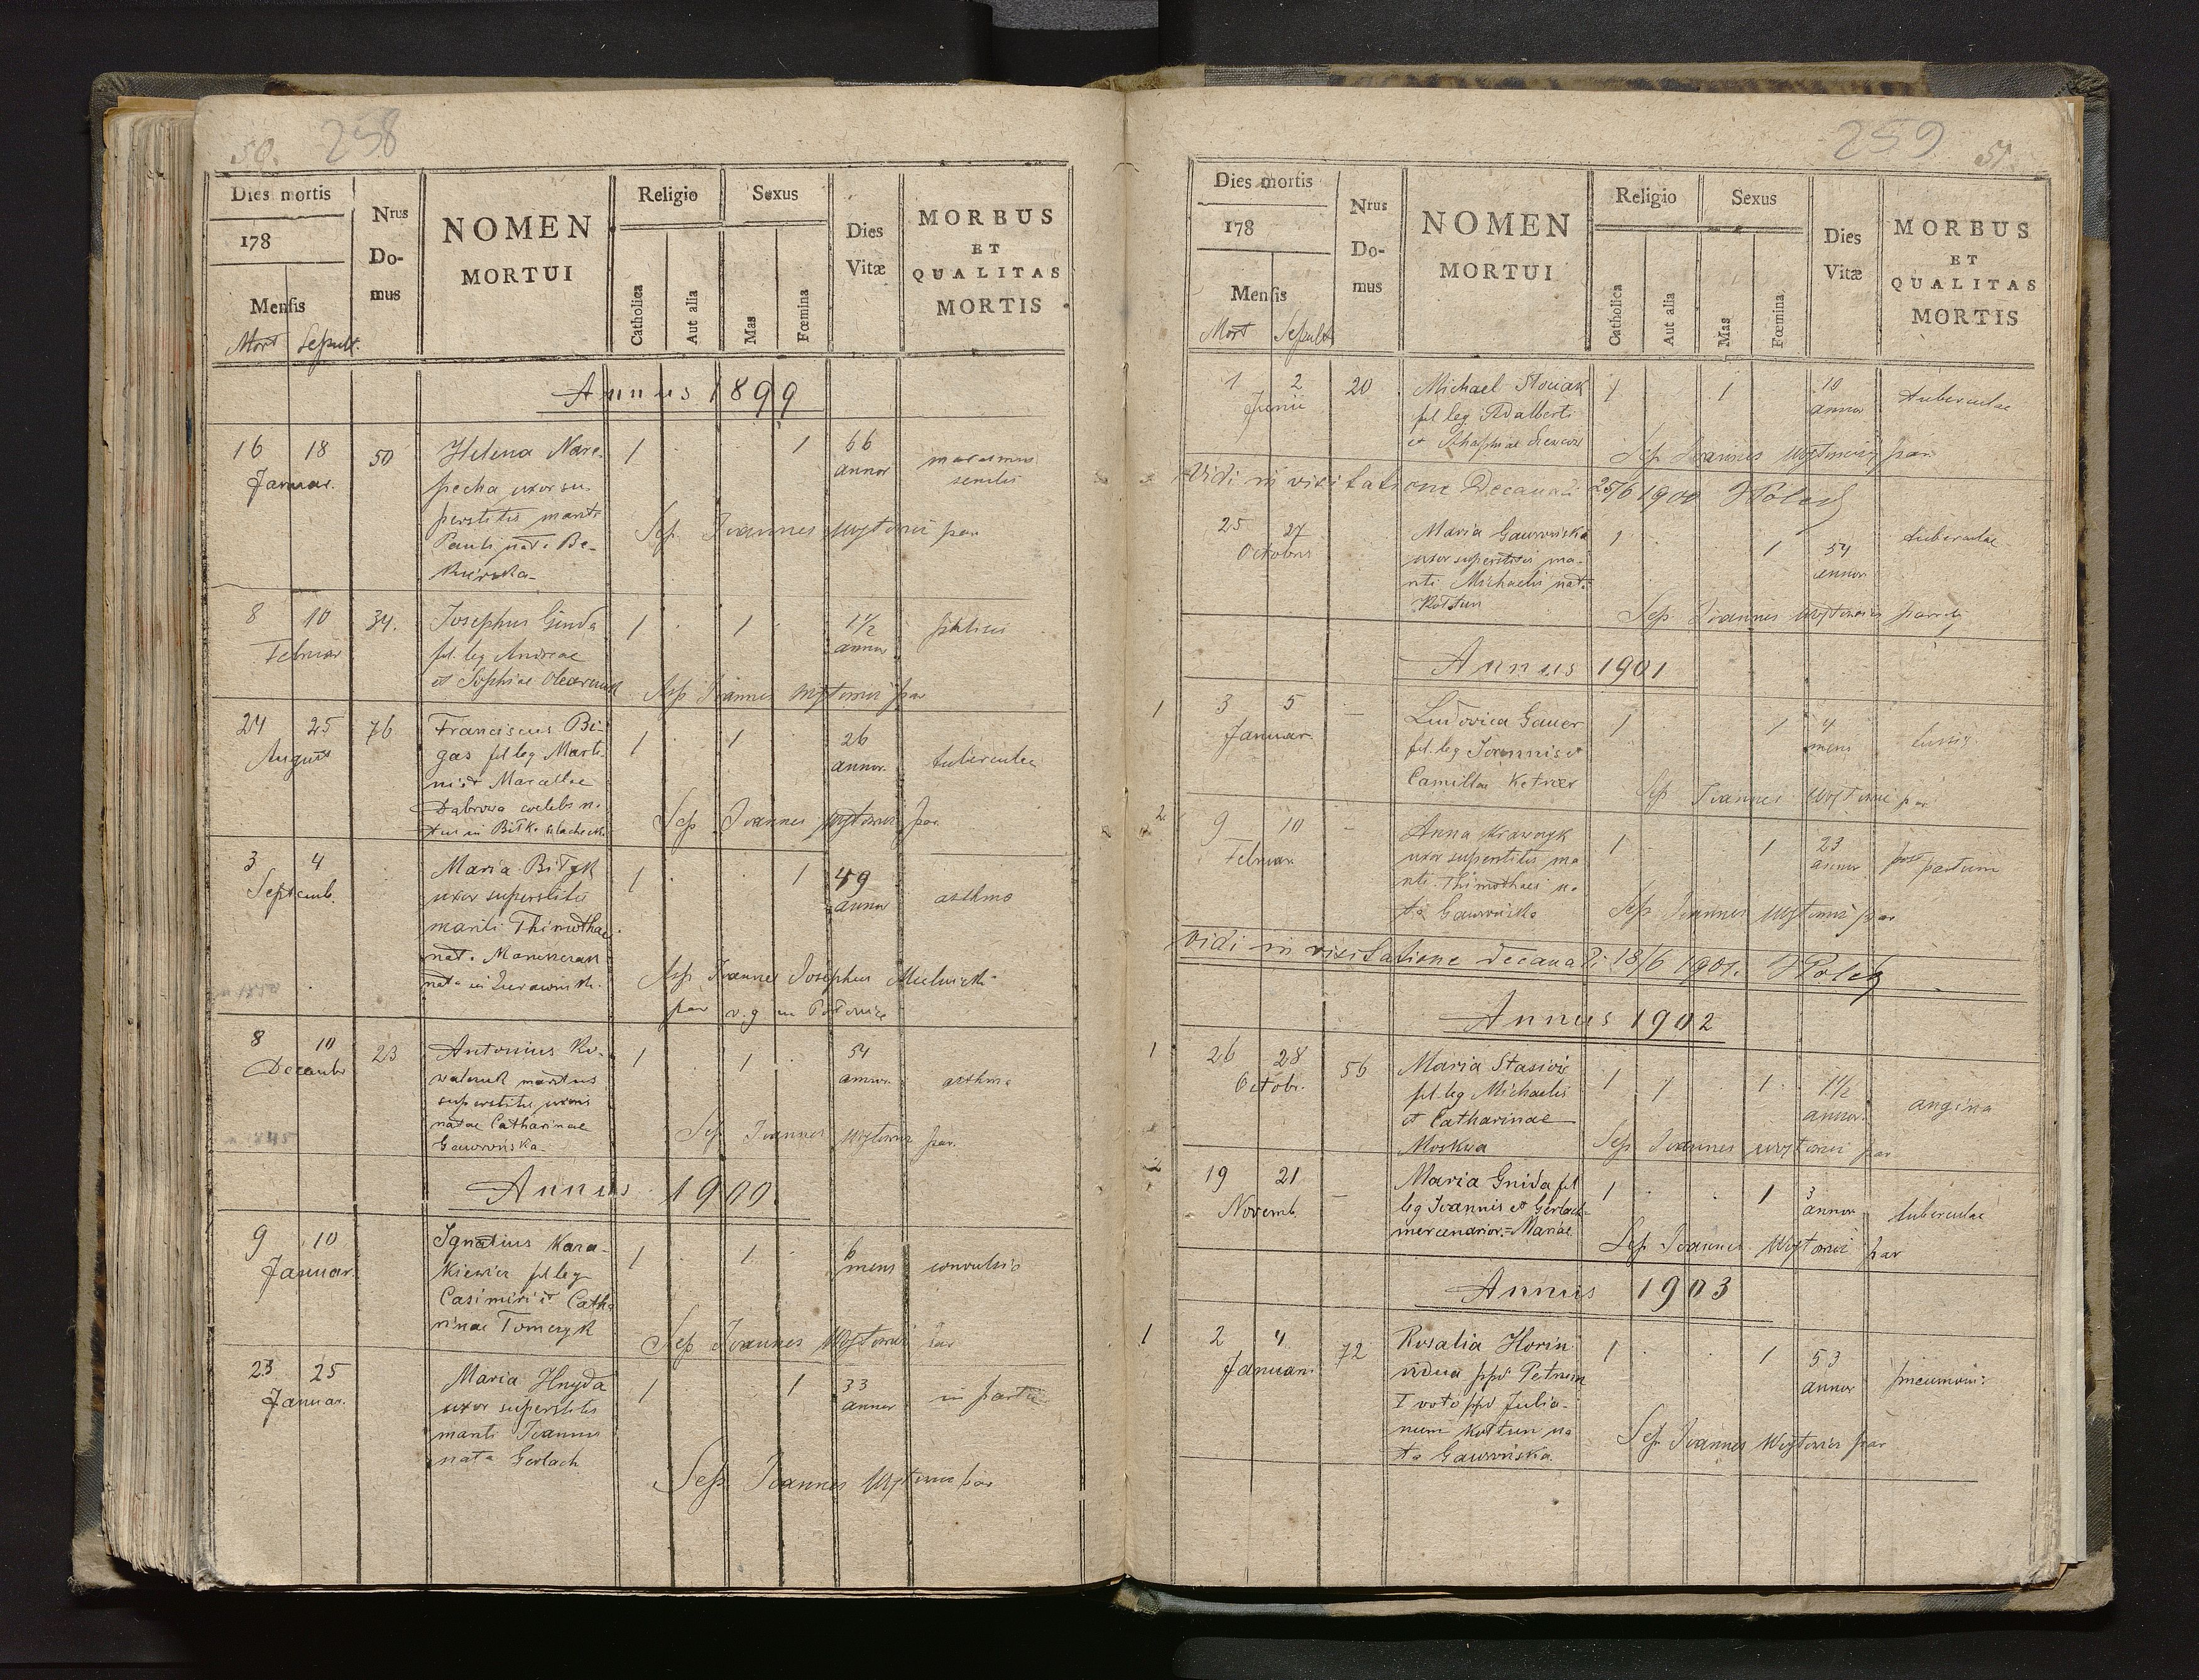 50. 258
Dies mortis
178
Mensis
Mort Sepult.
Nrus Domus
NOMEN MORTUI
Religio
Catholica
Aut alia
Sexus
Mas
Fœmina
Dies Vitæ
MORBUS ET QUALITAS MORTIS
Annus 1899
16 18 50 Helena Nare- 1 1 66
Januar. pecha uxor su- annor marasmus
perstitis mariti senilis
Pauli nata Be-
Sep. Joannes Wojtowicz par
8 10 34. Josephus Gnida 1 1 1 1/2
Februar fil. leg Andreae annor
et Sophiae
Sep Joannes Wojtowicz par
24 25 76 Franciscus Bi- 1 1 26
August gas fil leg Marti- annor. tuberculae
ni et Marcellae
Dąbrowa coelebs na-
tus in Biłka szlachecka
Sep Joannes Wojtowicz par
3 4 Maria Biłyk 1 1 49
Septemb. uxor superstitis annor asthma
mariti Thimothaei
nat.
nata in
Sep Joannes Josephus
par r. g in
8 10 23 Antonius Ko- 1 1 54
Decembr waleuk maritus annor. asthma
superstitis uxoris
natae Catharinae
Gawrońska
Sep Joannes Wojtowicz par.
Annus 1900.
9 10 Ignatius Kara- 1 1 6
Januar. kiewicz fil leg mens convulsio
Casimiri et Catha
rinae Tomczyk
Sep Joannes Wojtowicz par
23 25 Maria Hnyda 1 1 33
Januar. uxor superstitis annor in partu
mariti Joannis
nata Gerlach
Sep. Joannes Wojtowicz par
259 51.
Dies mortis
178
Mensis
Mort Sepult
Nrus Domus
NOMEN MORTUI
Religio
Catholica
Aut alia
Sexus
Mas
Fœmina
Dies Vitæ
MORBUS ET QUALITAS MORTIS
1 2 20 Michael 1 1 10
Junii fil leg. Adalberti annor tuberculae
et
Sep Joannes Wojtowicz par
Vidi in visitatione Decanali 25/6 1900
25 27 Maria Gawrońska 1 1 54 tuberculae
Octobris uxor superstitis ma- annor
riti Michaelis nat.
Kottun
Sep. Joannes Wojtowicz
Annus 1901
1 3 5 – Ludovica Gauer 1 1 4
Januar. fil. leg Joannis et mens tussis
Camilla Ketner
Sep Joannes Wojtowicz par
2 9 10 – Anna Krawczyk 1 1 23
Februar. uxor superstitis ma annor post partum
riti Thimothaei na
ta Gawrońska
Sep Joannes Wojtowicz par
Vidi in visitatione decanali 18/6 1901.
Annus 1902
1 26 28 56 Maria Stasiów 1 1 1 1/2
Octobr. fil leg Michaelis annor. angina
et Catharinae
Moskwa
Sep Joannes Wojtowicz par
2 19 21 – Maria Gnida fil 1 1 3
Novemb. leg Joannis et Gerlach annor tuberculae
mercenarior. = Mariae
Sep Joannes Wojtowicz par
Annus 1903
1 2 4 72 Rosalia Horin 1 1 53
Januar. vidua ppo Petrum annor pneumoni
I voto ppo Julia-
num Kottun na
ta Gawrońska
Sep Joannes Wojtowicz par